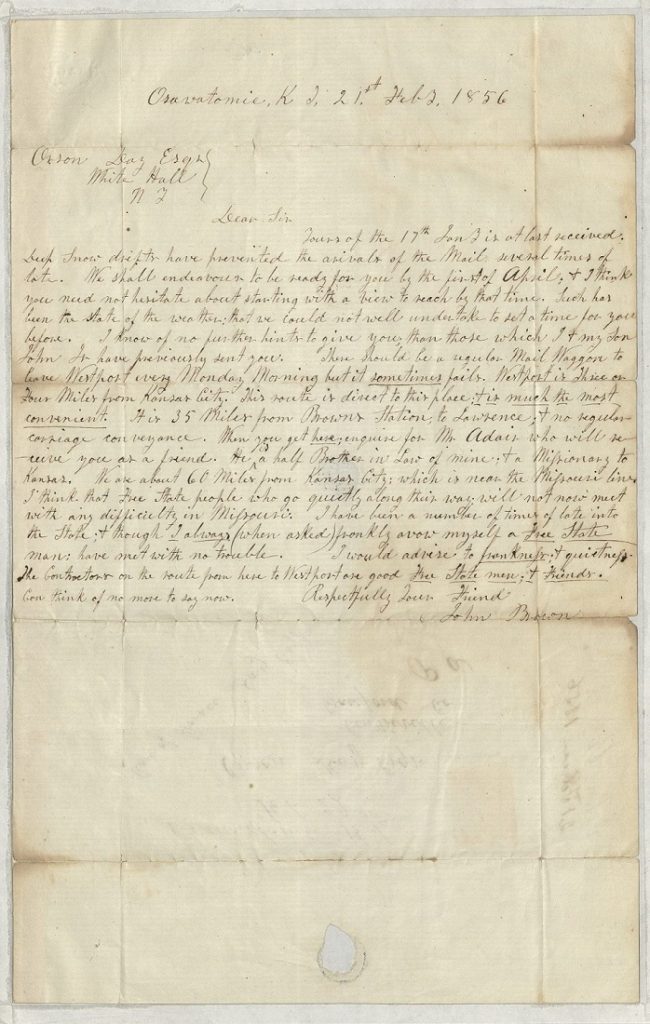 Osawatomie, K T, 21st Feby, 1856
Orson Day Esqr
White Hall
N Y
Dear Sir
Yours of the 17th Jany is at last received.
Deep Snow drifts have prevented the arivals of the Mail several times of
late. We shall endeavour to be ready for you by the first of April; & I think
you need not hesitate about starting with a view to reach by that time. Such has
been the state of the weather; that we could not well undertake to set a time for you
before. I know of no further hints to give you, than those which I & my Son
John Jr have previously sent you. There should be a regular Mail Waggon to
leave Westport every Monday Morning but it sometimes fails. Westport is Three or
Four Miles from Kansas City. This route is direct to this place; & is much the most
convenient. It is 35 Miles from Browns Station, to Lawrence; & no regular
carriage conveyance. When you get here; enquire for Mr Adair who will re-
ceive you as a friend. He is a half Brother in Law of mine; & a Missionary to
Kansas. We are about 60 Miles from Kansas City; which is near the Missouri line.
I think that Free State people who go quietly along their way will not now meet
with any difficulty in Missouri. I have been a number of times of late into
the State; & though I always (when asked) frankly avow myself a Free State
man; have met with no trouble. I would advise to frankness; & quietness.
The Contractors on the route from here to Westport are good Free State men; & Friends.
Can think of no more to say now. Respectfully Your Friend
John Brown